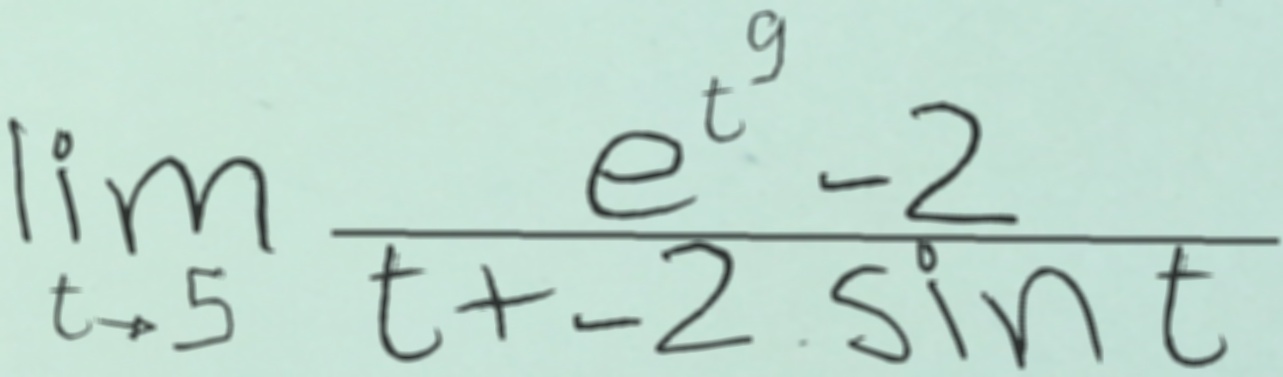 \lim_{t \to 5} \frac{e^{t^9} - 2}{t + -2 \cdot \sin t}